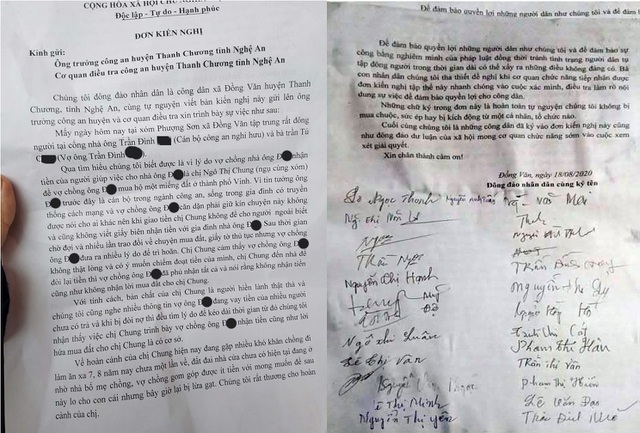 CỘNG HÒA XÃ HỘI CHỦ
Độc lập - Tự do - Hạnh phúc
ĐƠN KIẾN NGHỊ
Kính gửi:
Ông trưởng công an huyện Thanh Chương tỉnh Nghệ An
Cơ quan điều tra công an huyện Thanh Chương tỉnh Nghệ An
Chúng tôi đông đảo nhân dân là công dân xã Đồng Văn huyện Thanh
Chương, tỉnh Nghệ An, cùng tự nguyện viết bản kiến nghị này gửi lên ông
trưởng công an huyện và cơ quan điều tra xin trình bày sự việc như sau:
Mấy ngày hôm nay tại xóm Phượng Sơn xã Đồng Văn tập trung rất đông
người tại cổng nhà ông Trần Đình (Cán bộ công an nghỉ hưu) và bà trần Tú
C (Vợ ông Trần Đình
Qua tìm hiểu chúng tôi biết được là vì lý do vợ chồng nhà ông Đ nhận
tiền của người giúp việc cho nhà ông Đ là chị Ngô Thị Chung (ngụ cùng xóm)
để vợ chồng ông Đ mua hộ một miếng đất ở thành phố Vinh. Vì tin tưởng ông
Đ trước đây là cán bộ trong ngành công an, sống trong gia đình có truyền
thống cách mạng và vợ chồng ông Đ căn dặn phải giữ kín chuyện này không
được nói cho ai khác nên khi giao tiền chị Chung không để cho người ngoài biết
và cũng không viết giấy biên nhận tiền với gia đình nhà ông Đ Sau thời gian
chờ đợi và nhiều lần trao đổi về chuyện mua đất, giấy tờ thủ tục nhưng vợ chồng
ông Đ đưa ra nhiều lý do để trì hoãn. Chị Chung cảm thấy vợ chồng ông Đ
không thật lòng và có ý muốn chiếm đoạt tiền của mình, chị Chung đến nhà để
đòi lại tiền thì vợ chồng ông Đ đã phủ nhận tất cả và nói rằng không nhận tiền
cũng như không nhận lời mua đất cho chị Chung.
Với tính cách, bản chất của chị Chung là người hiền lành thật thà và
chúng tôi cũng nghe nhiều thông tin vợ ông Đ đang vay tiền của nhiều người
chưa có trả và khi bị đòi nợ thì đều tìm lý do để kéo dài thời gian từ đó chúng tôi
nhận thấy việc chị Chung trình bày vợ chồng ông Đ nhận tiền cũng như lời
hứa mua đất cho chị Chung là có cơ sở.
Về hoàn cảnh của chị Chung hiện nay đang gặp nhiều khó khăn chồng đi
làm ăn xa 7, 8 năm nay chưa một lần về, đất đai nhà cửa chưa có hiện tại đang ở
nhờ nhà bố mẹ chồng, vợ chồng gom góp được ít tiền với mong muốn để sau
này lo cho con cái nhưng bây giờ lại bị lừa gạt. Chúng tôi rất thương cho hoàn
cảnh của chị.
Để đảm bảo quyền lợi những người dân như chúng tôi và để đảm
Để đảm bảo quyền lợi những người dân như chúng tôi và để đảm bảo sự
công bằng nghiêm minh của pháp luật đồng thời tránh tình trạng người dân tụ
tập đông người trong thời gian dài có thể xảy ra những điều không đáng có. Bà
con nhân dân chúng tôi tha thiết đề nghị cơ quan chức năng tiếp nhận được
đơn kiến nghị tập thể này nhanh chóng vào cuộc xác minh, điều tra làm rõ nội
dung sự việc để đảm bảo quyền lợi cho công dân.
Những chữ ký trong đơn này là hoàn toàn tự nguyện chúng tôi không bị
mua chuộc, sức ép hay bị kích động từ một cá nhân, tổ chức nào.
Cuối cùng chúng tôi là những công dân đã ký vào đơn kiến nghị này cũng
như đông đảo dư luận của xã hội mong cơ quan chức năng sớm vào cuộc xem
xét giải quyết.
Xin chân thành cảm ơn!
Đồng Văn, ngày 18/08/2020
Đông đảo nhân dân cùng ký tên
Ngọc Thanh
Nguyễn Chí Hạnh
Ngô thị Xuân
Phạm Thị Hân
Lê Thị Vân
Trần thị Vân
Lê Thị Minh
Lê Văn Đạo
Nguyễn Thị yên
Trần Đình Nhã